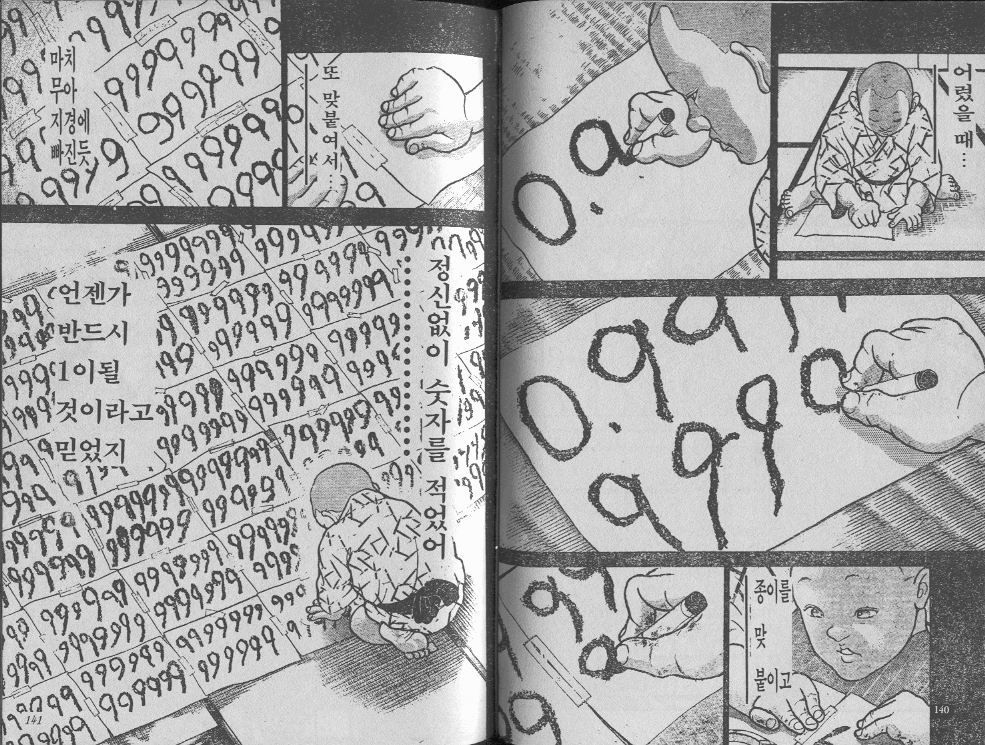 어렸을 때…
0.9
0.9 9
9 9 9
종이를
맞
붙이고
140
또 맞붙여서…
마치
무아
지경에
빠진듯
정신없이 숫자를 적었어
언젠가
반드시
1이될
것이라고
믿었지
141